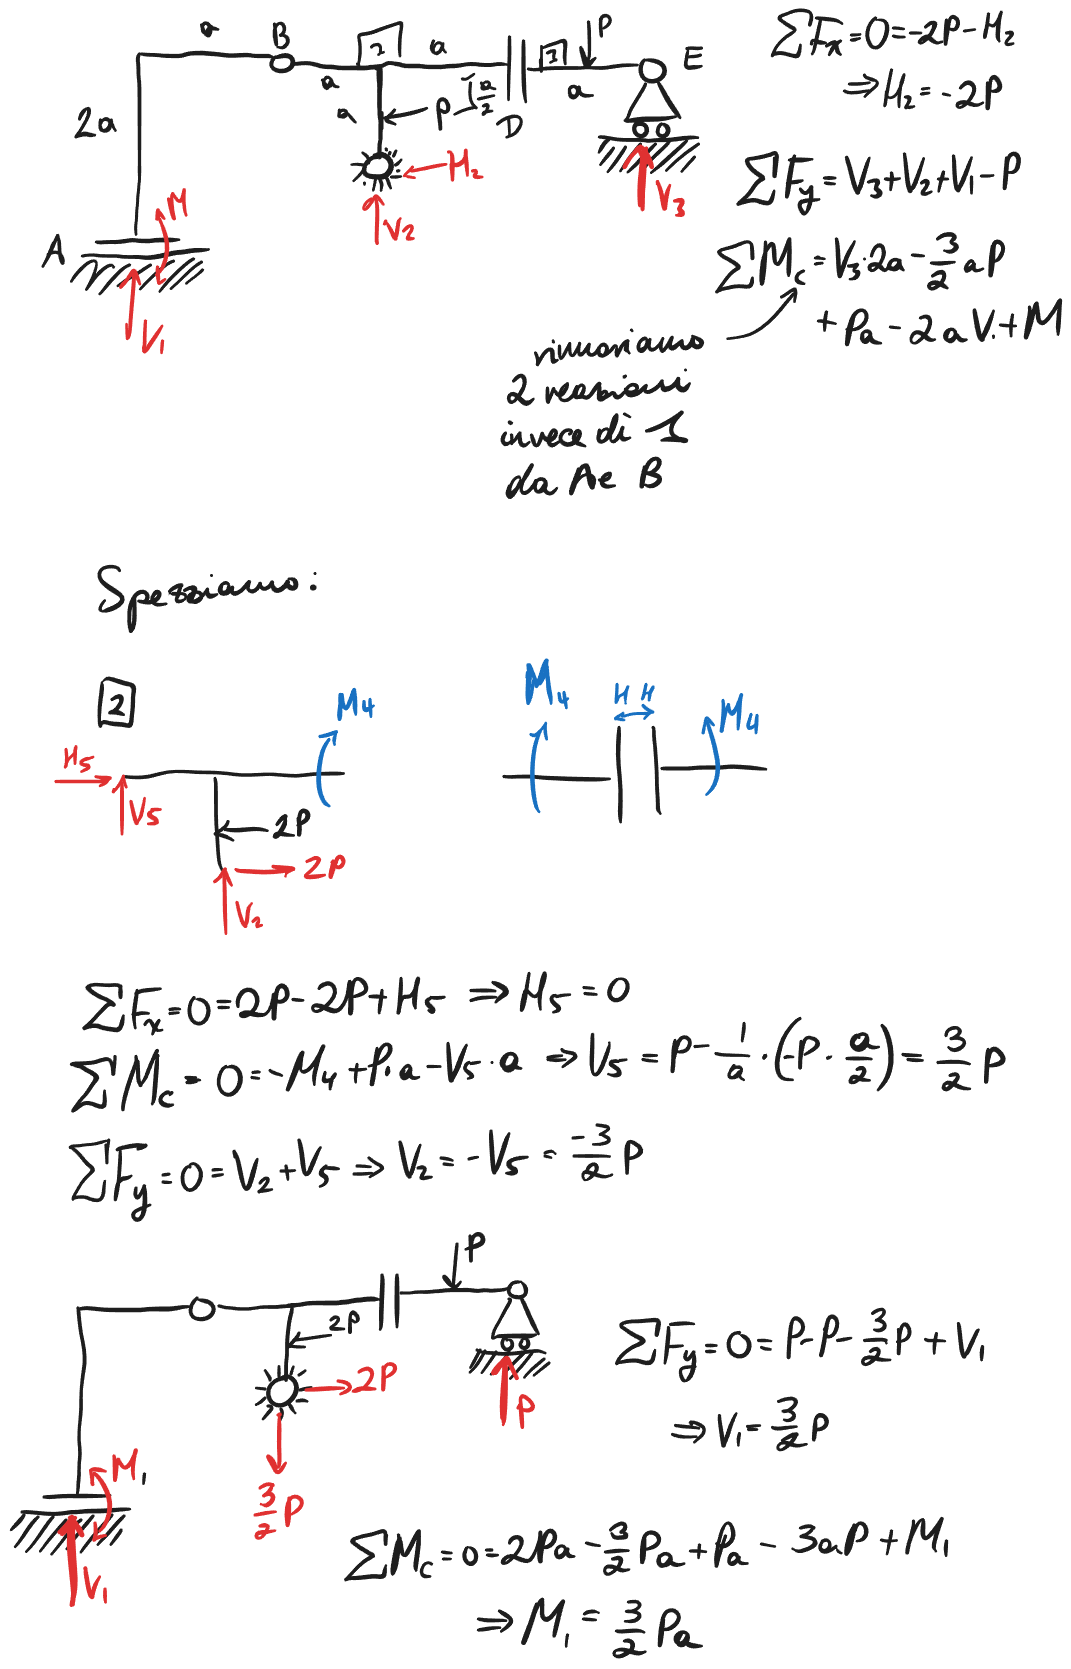 a B 2 a 3 P E
2a a a P a/2 D a
M H₂ V₂ V₃
A
V₁
ΣFx=0=-2P-H₂
⇒H₂=-2P
ΣFy=V₃+V₂+V₁-P
ΣMc=V₃·2a-3/2aP
+Pa-2aV₁+M
rimoriamo
2 reazioni
invece di 1
da A e B
Spezziamo:
2
M₄ M₄ H H M₄
H₅
V₅ 2P
2P
V₂
ΣFx=0=2P-2P+H₅ ⇒H₅=0
ΣMc=0=-M₄+P·a-V₅·a ⇒V₅=P-1/a·(-P·a/2)=3/2 P
ΣFy=0=V₂+V₅⇒V₂=-V₅=-3/2 P
P
2P
2P
P
M₁
3/2 P
V₁
ΣFy=0=P-P-3/2P+V₁
⇒V₁=3/2P
ΣMc=0=2Pa-3/2Pa+Pa-3aP+M₁
⇒M₁=3/2Pa